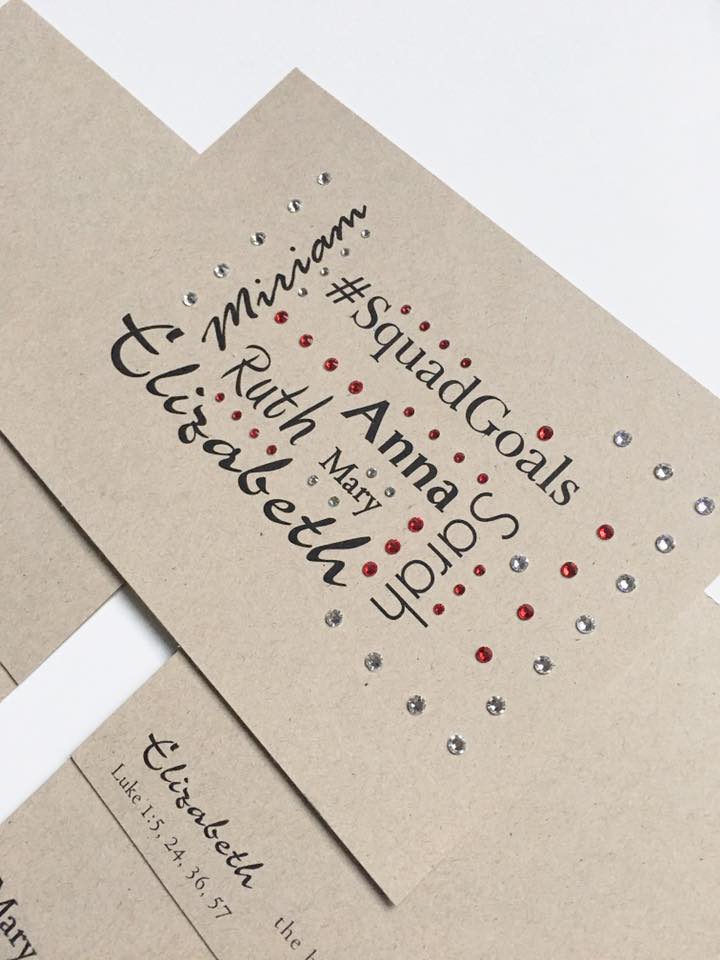 Miriam
#SquadGoals
Ruth
Anna
Elizabeth
Mary
Sarah
Elizabeth
Luke 1:5, 24, 36, 57
the
Mary